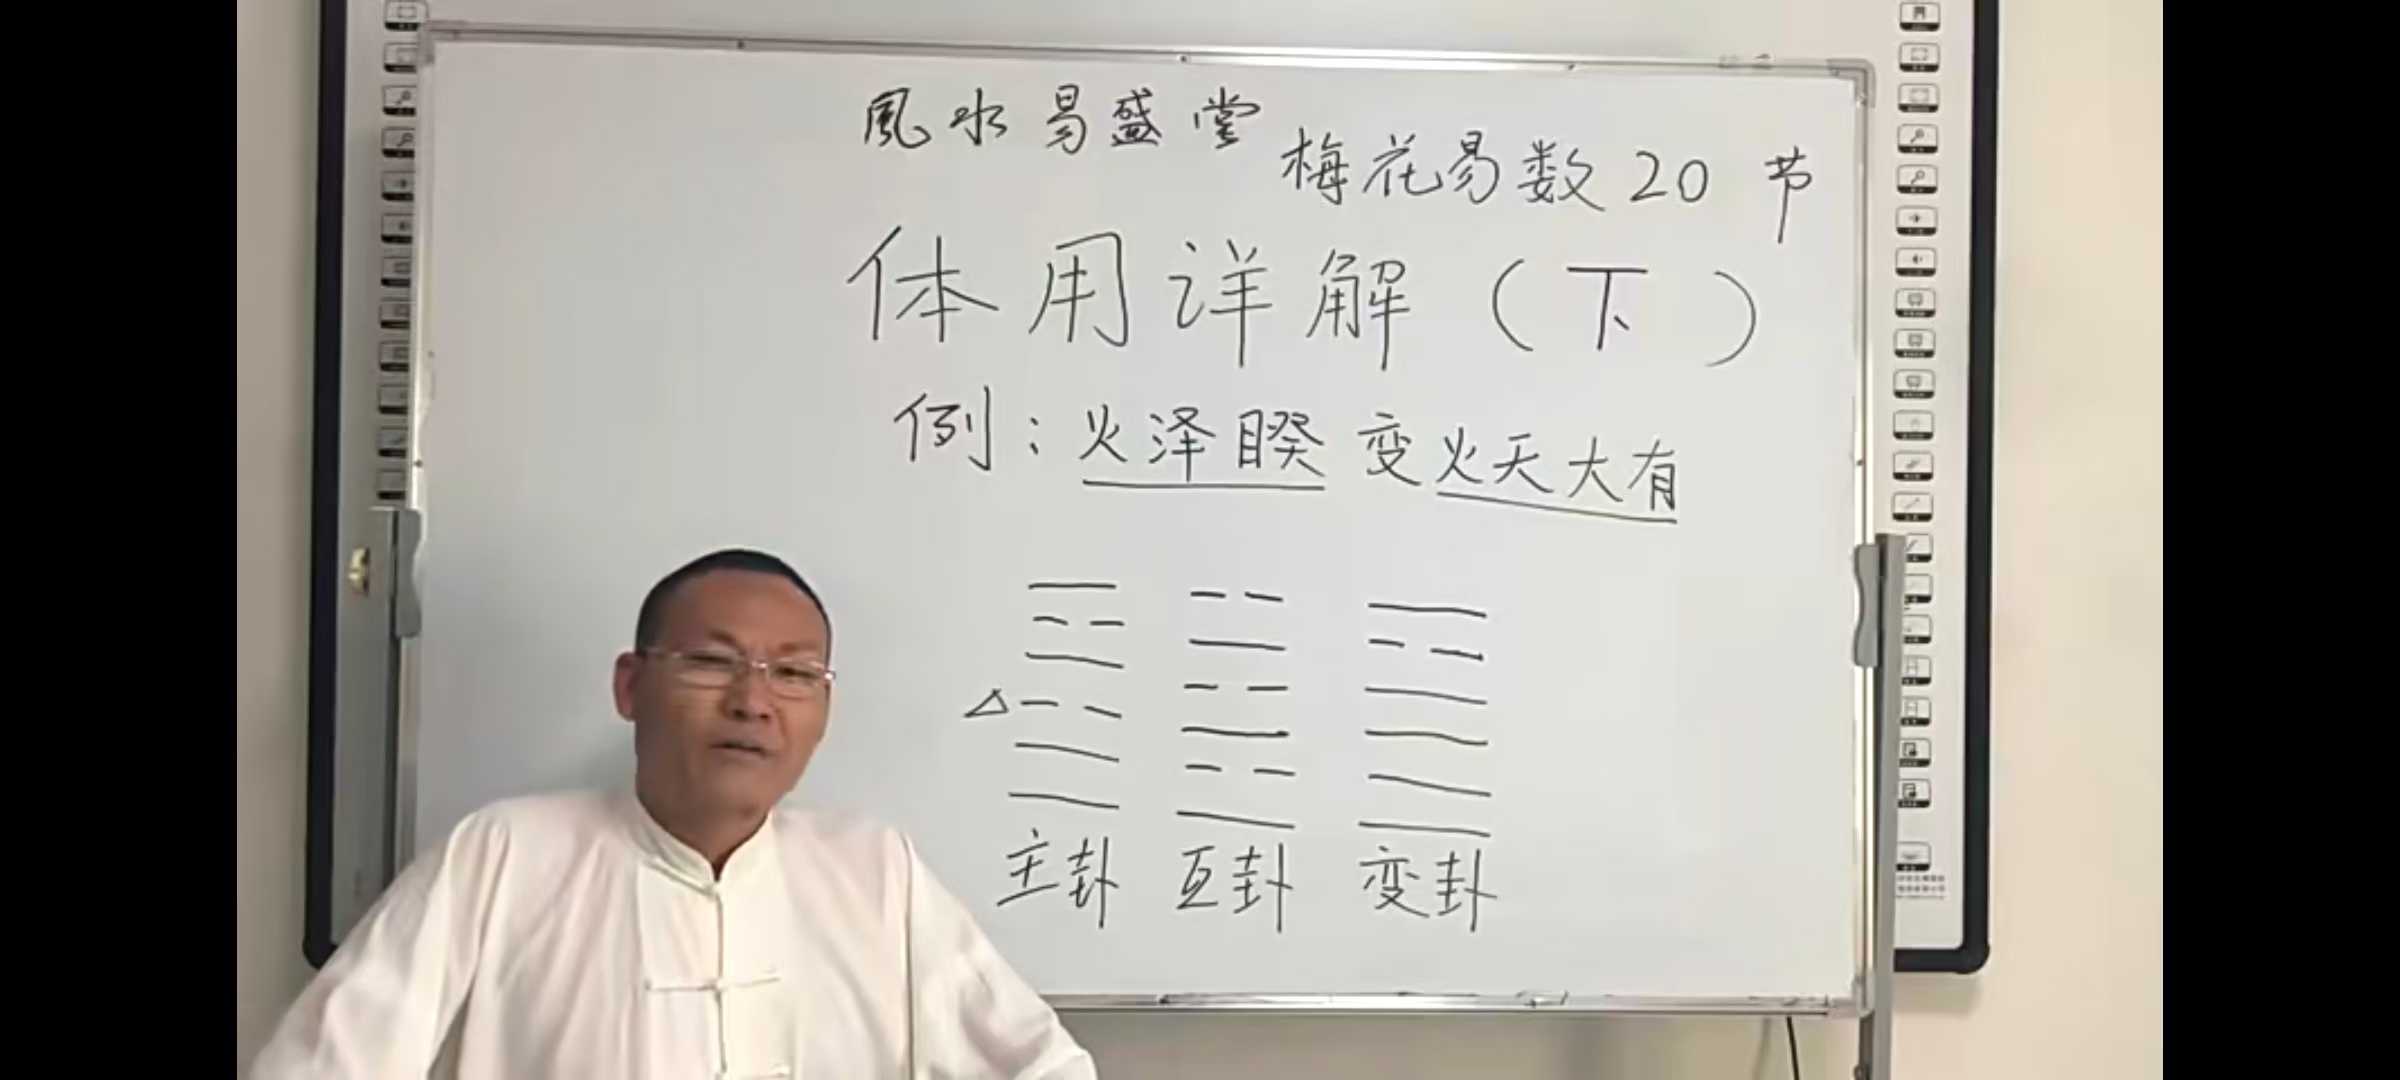 風水易盛堂
梅花易数20节
体用详解（下）
例：火泽睽变火天大有
主卦 互卦 变卦